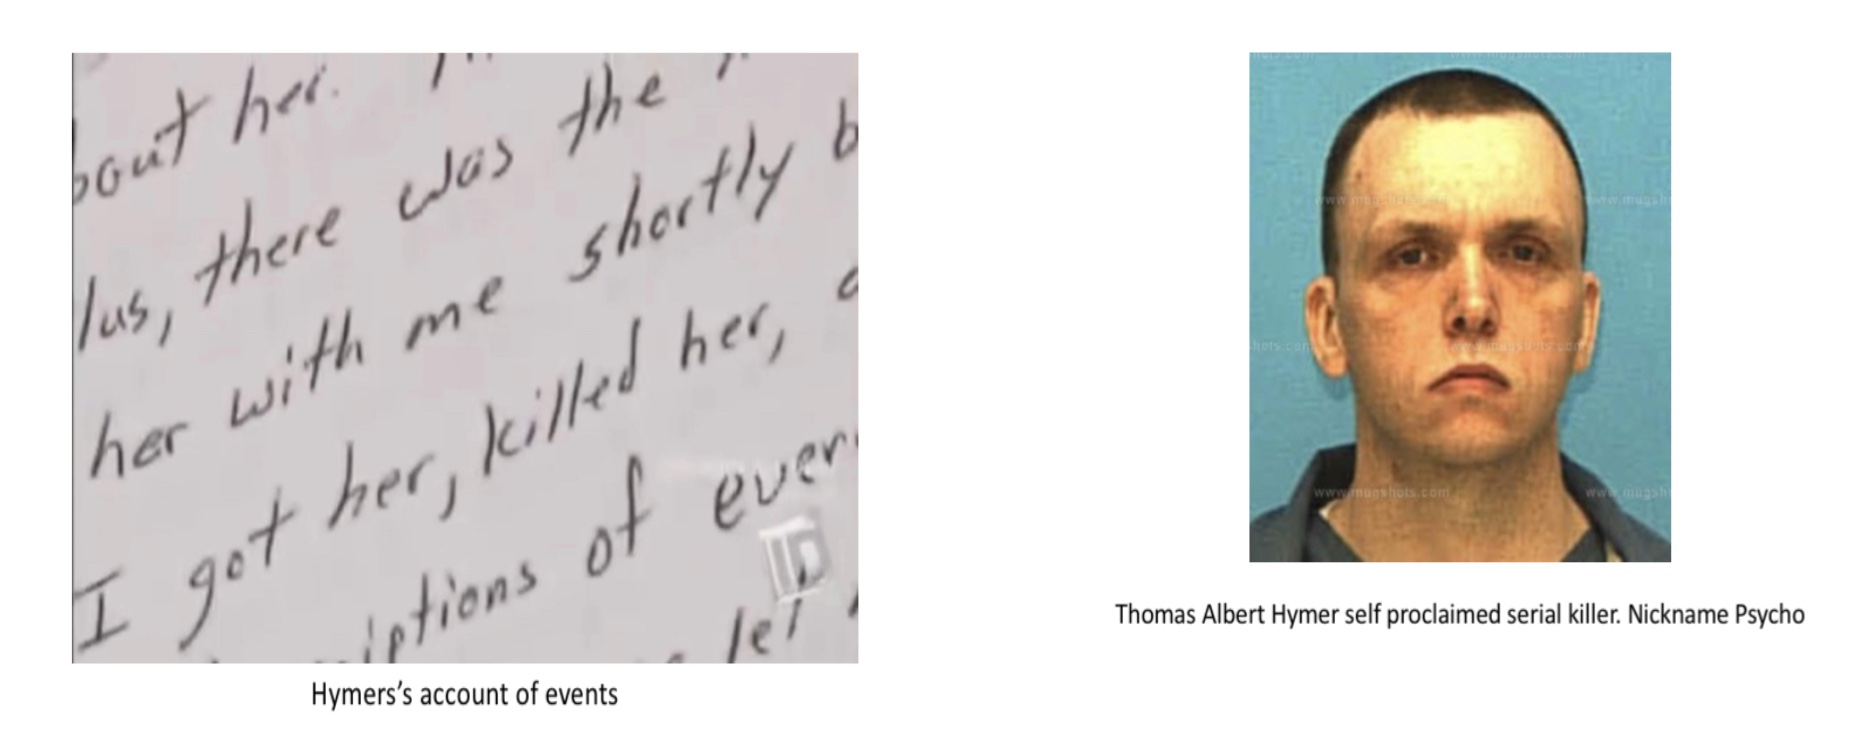 bout her.
lus, there was the
her with me shortly b
I got her, killed her,
iptions of ever
let
ID
Hymers's account of events
www.mugshots.com
Thomas Albert Hymer self proclaimed serial killer. Nickname Psycho